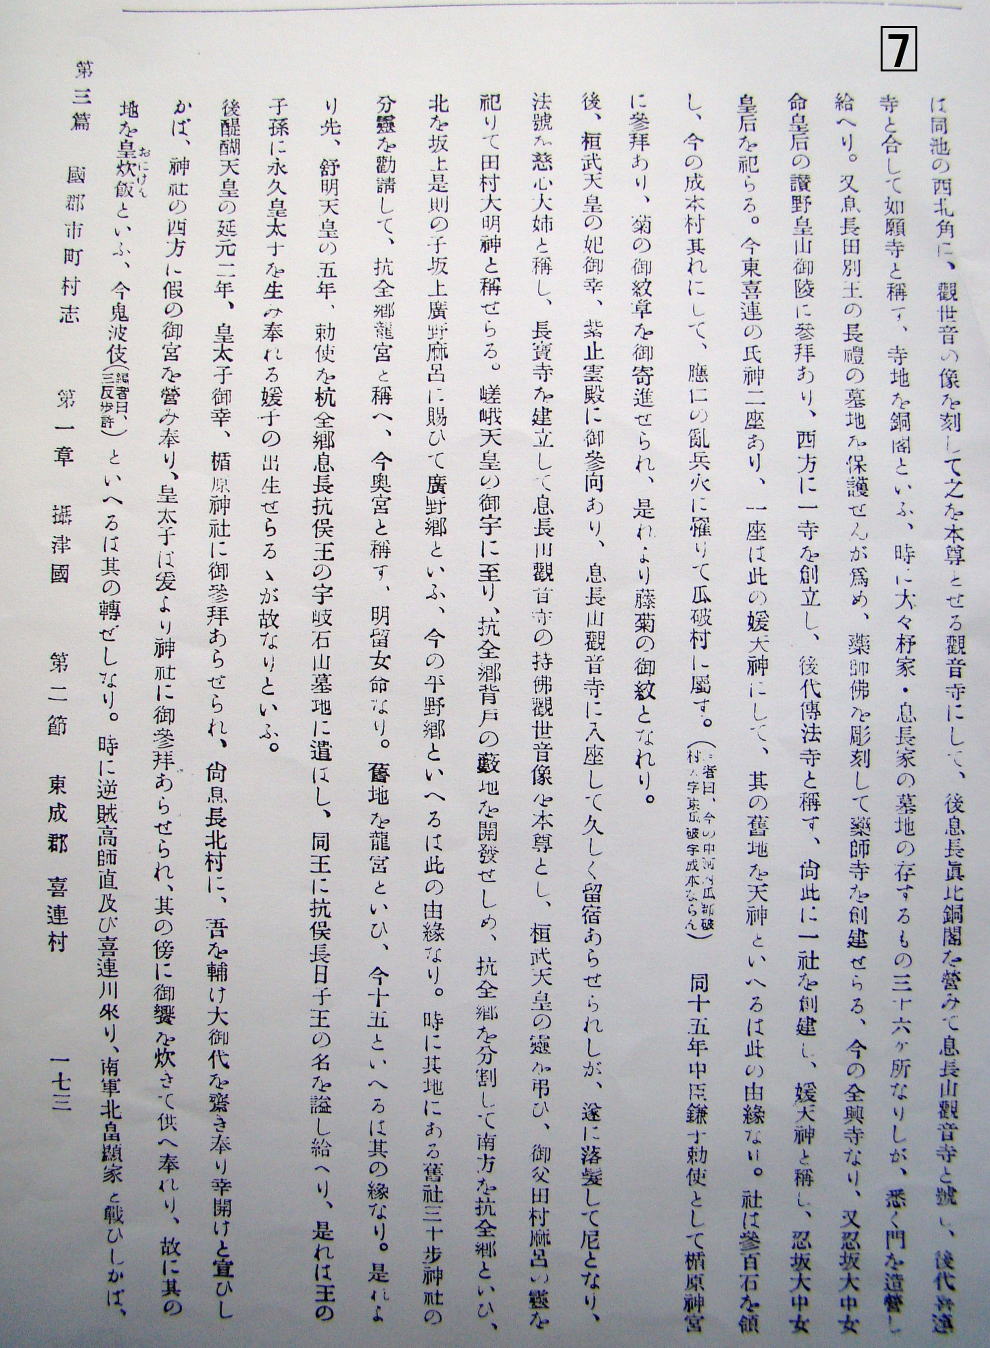 7
は同池の西北角に、觀世音の像を刻して之を本尊とせる觀音寺にして、後息長眞比銅閣を營みて息長山觀音寺と號し、後代喜連
寺と合して如願寺と稱す、寺地を銅閣といふ、時に大々杼家・息長家の墓地の存するもの三十六ヶ所なりしが、悉く門を造營し
給へり。又息長田別王の長禮の墓地を保護せんが爲め、藥師佛を彫刻して藥師寺を創建せらる、今の全興寺なり、又忍坂大中女
命皇后の讚野皇山御陵に參拜あり、西方に一寺を創立し、後代傳法寺と稱す、尙此に一社を創建し、媛天神と稱し、忍坂大中女
皇后を祀らる。今東喜連の氏神二座あり、一座は此の媛天神にして、其の舊地を天神といへるは此の由緣なり。社は參百石を領
し、今の成本村其れにして、應仁の亂兵火に罹りて瓜破村に屬す。(編者曰、今の中河内郡瓜破村大字東瓜破字成本ならん) 同十五年中臣鎌子勅使として楯原神宮
に參拜あり、菊の御紋章を御寄進せられ、是れより藤菊の御紋となれり。
後、桓武天皇の妃御幸、紫止雲殿に御參向あり、息長山觀音寺に入座して久しく留宿あらせられしが、遂に落髮して尼となり、
法號を慈心大姉と稱し、長寶寺を建立して息長田觀音寺の持佛觀世音像を本尊とし、桓武天皇の靈を弔ひ、御父田村麻呂の靈を
祀りて田村大明神と稱せらる。嵯峨天皇の御宇に至り、抗全郷背戶の藪地を開發せしめ、抗全郷を分割して南方を抗全郷といひ、
北を坂上是則の子坂上廣野麻呂に賜ひて廣野郷といふ、今の平野郷といへるは此の由緣なり。時に其地にある舊社三十步神社の
分靈を勸請して、抗全郷龍宮と稱へ、今奧宮と稱す、明留女命なり。舊地を龍宮といひ、今十五といへるは其の緣なり。是れよ
り先、舒明天皇の五年、勅使を杭全郷息長抗俣王の宇岐石山墓地に遣はし、同王に抗俣長日子王の名を謚し給へり、是れは王の
子孫に永久皇太子を生み奉れる媛子の出生せらるゝが故なりといふ。
後醍醐天皇の延元二年、皇太子御幸、楯原神社に御參拜あらせられ、尙息長北村に、吾を輔け大御代を齋き奉り幸開けと宣ひし
かば、神社の西方に假の御宮を營み奉り、皇太子は爰より神社に御參拜あらせられ、其の傍に御饗を炊きて供へ奉れり、故に其の
地を皇炊飯おにけんといふ、今鬼波伎(編者曰、三反步許)といへるは其の轉ぜしなり。時に逆賊高師直及び喜連川來り、南軍北畠顯家と戰ひしかば、
第三篇 國郡市町村志 第一章 攝津國 第二節 東成郡 喜連村 一七三